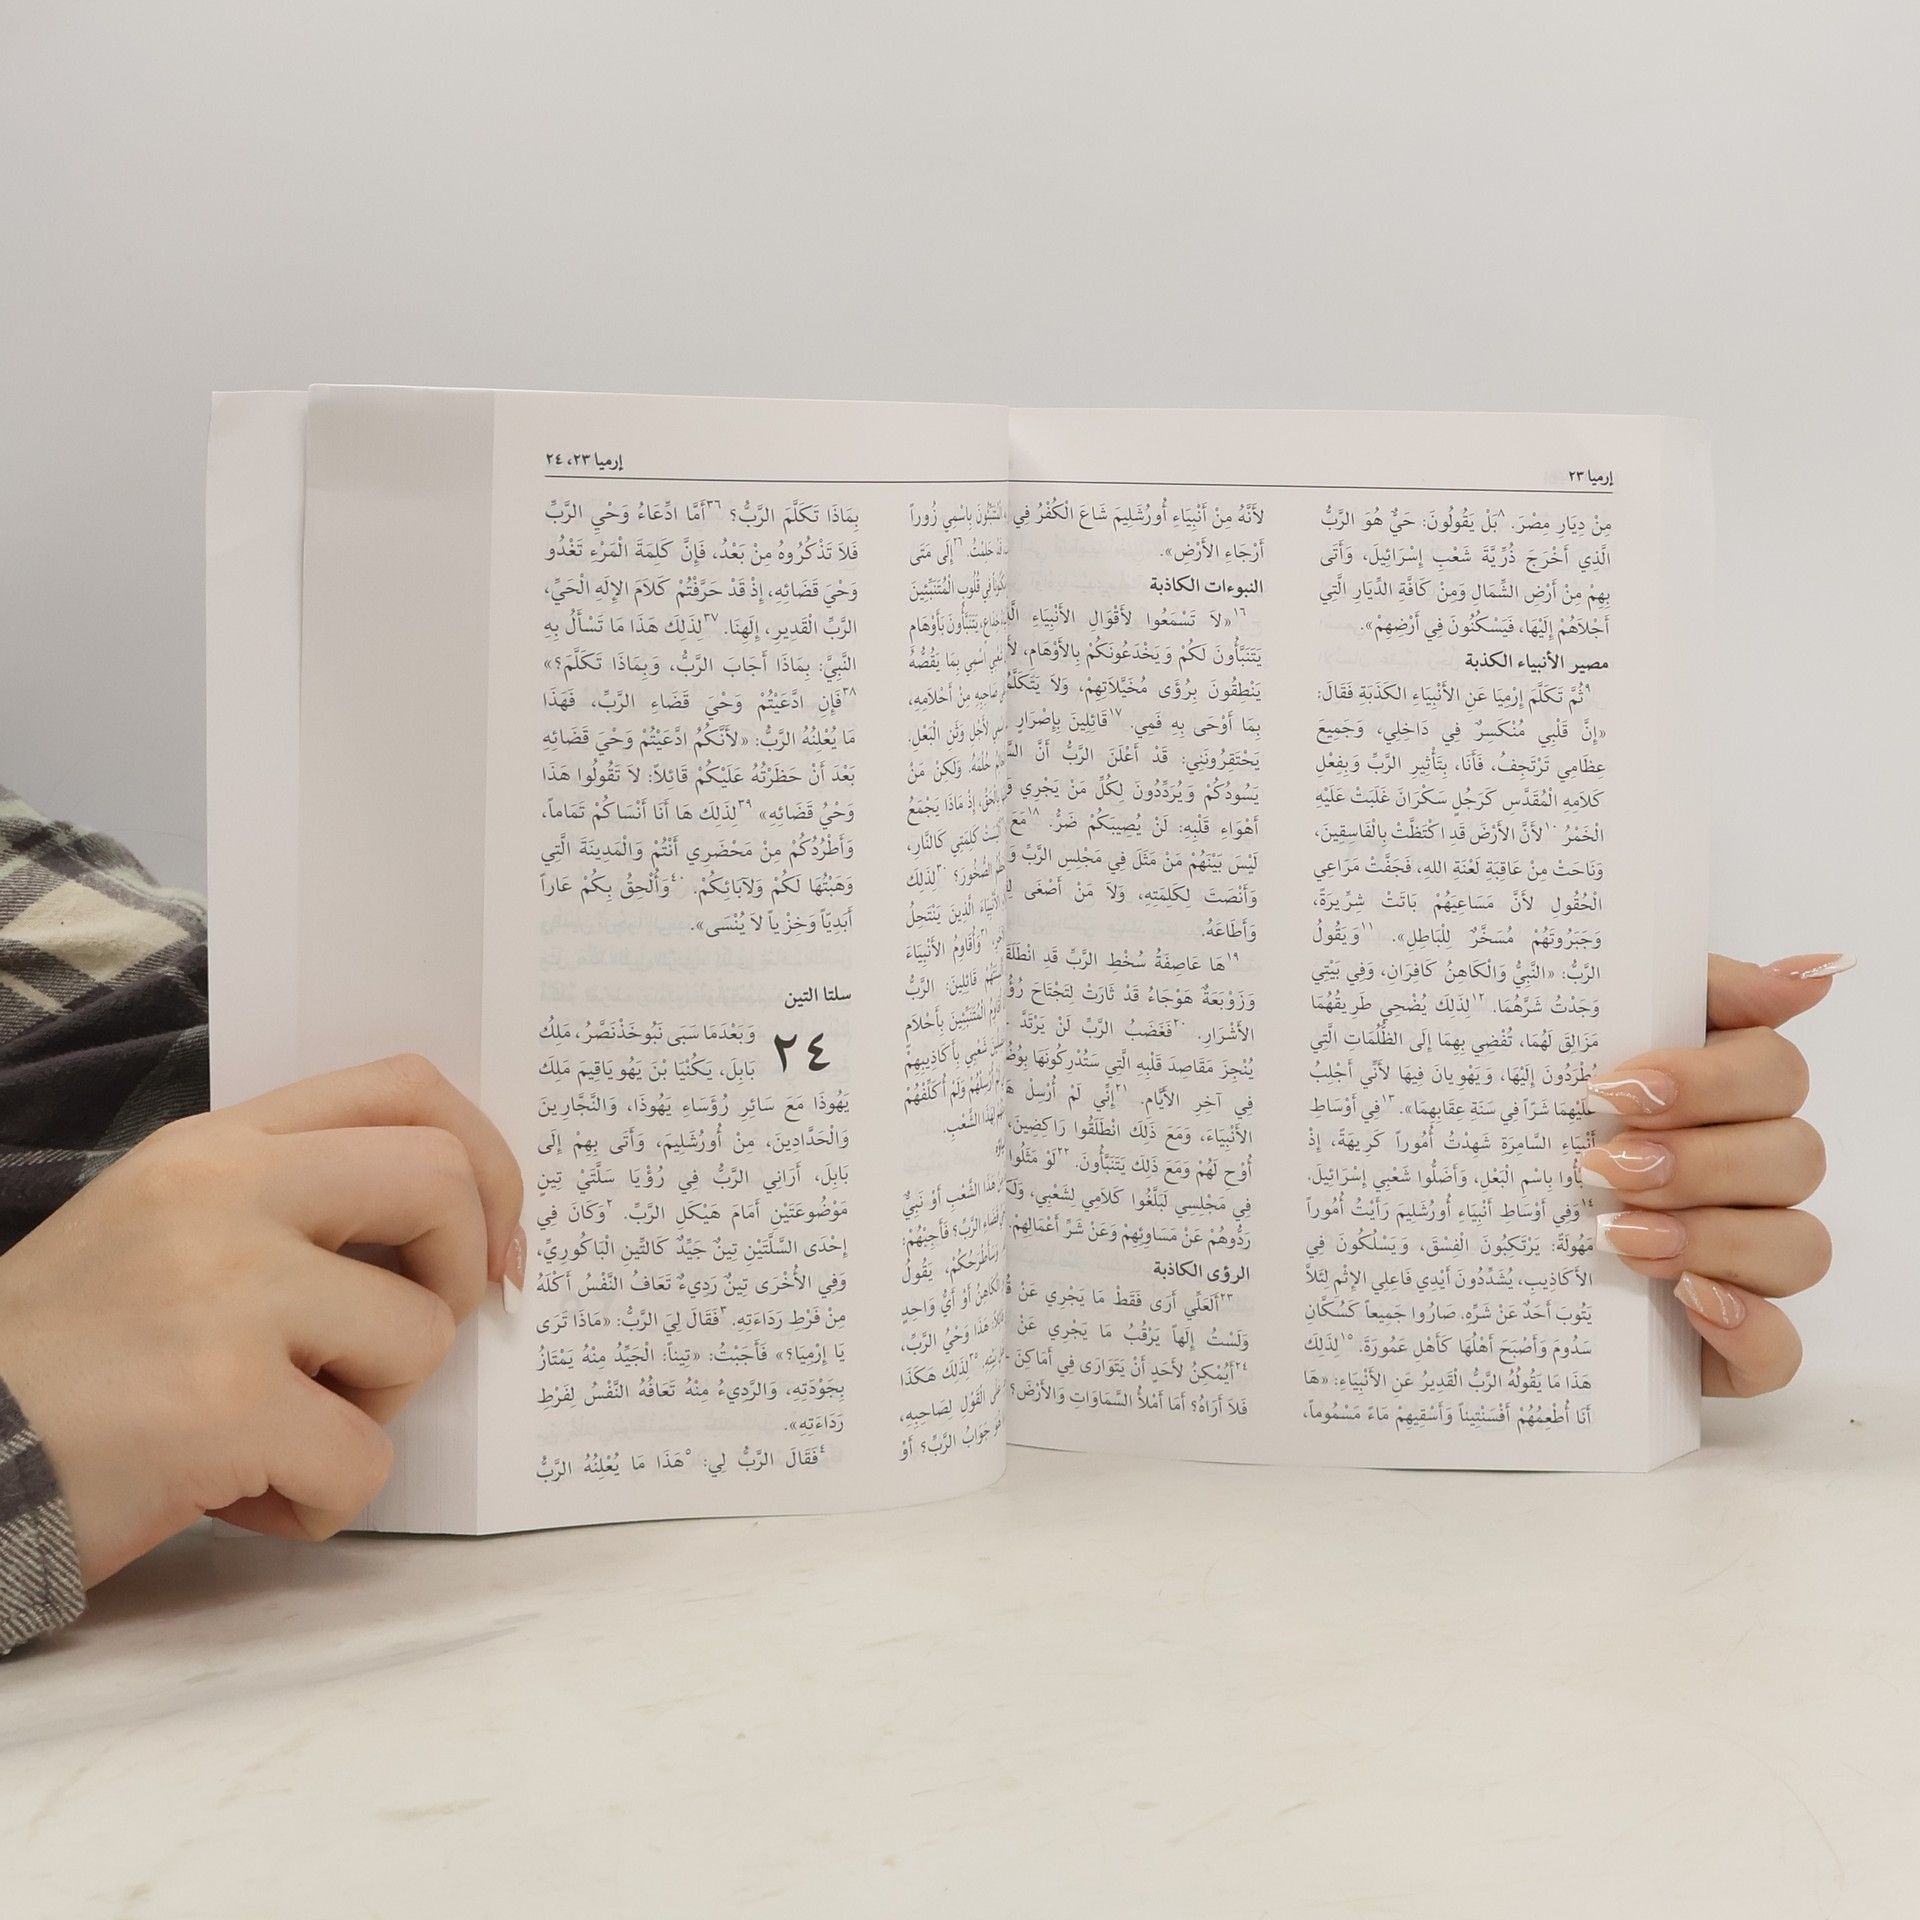 إرميا ٢٣
مِنْ دِيَارِ مِصْرَ. ٨بَلْ يَقُولُونَ: حَيٌّ هُوَ الرَّبُّ
الَّذِي أَخْرَجَ ذُرِّيَّةَ شَعْبِ إِسْرَائِيلَ، وَأَتَى
بِهِمْ مِنْ أَرْضِ الشِّمَالِ وَمِنْ كَافَّةِ الدِّيَارِ الَّتِي
أَجْلاَهُمْ إِلَيْهَا، فَيَسْكُنُونَ فِي أَرْضِهِمْ».
مصير الأنبياء الكذبة
٩ثُمَّ تَكَلَّمَ إِرْمِيَا عَنِ الأَنْبِيَاءِ الْكَذَبَةِ فَقَالَ:
«إِنَّ قَلْبِي مُنْكَسِرٌ فِي دَاخِلِي، وَجَمِيعَ
عِظَامِي تَرْتَجِفُ، فَأَنَا، بِتَأْثِيرِ الرَّبِّ وَبِفِعْلِ
كَلاَمِهِ الْمُقَدَّسِ كَرَجُلٍ سَكْرَانَ غَلَبَتْ عَلَيْهِ
الْخَمْرُ ١٠لأَنَّ الأَرْضَ قَدِ اكْتَظَّتْ بِالْفَاسِقِينَ،
وَنَاحَتْ مِنْ عَاقِبَةِ لَعْنَةِ اللهِ، فَجَفَّتْ مَرَاعِي
الْحُقُولِ لأَنَّ مَسَاعِيَهُمْ بَاتَتْ شِرِّيرَةً،
وَجَبَرُوتَهُمْ مُسَخَّرٌ لِلْبَاطِلِ». ١١وَيَقُولُ
الرَّبُّ: «النَّبِيُّ وَالْكَاهِنُ كَافِرَانِ، وَفِي بَيْتِي
وَجَدْتُ شَرَّهُمَا. ١٢لِذَلِكَ يُضْحِي طَرِيقُهُمَا
مَزَالِقَ لَهُمَا، تُفْضِي بِهِمَا إِلَى الظُّلُمَاتِ الَّتِي
يُطْرَدُونَ إِلَيْهَا، وَيَهْوِيانِ فِيهَا لأَنِّي أَجْلِبُ
عَلَيْهِمَا شَرّاً فِي سَنَةِ عِقَابِهِمَا». ١٣فِي أَوْسَاطِ
أَنْبِيَاءِ السَّامِرَةِ شَهِدْتُ أُمُوراً كَرِيهَةً، إِذْ
بِاسْمِ الْبَعْلِ، وَأَضَلُّوا شَعْبِي إِسْرَائِيلَ.
١٤وَفِي أَوْسَاطِ أَنْبِيَاءِ أُورُشَلِيمَ رَأَيْتُ أُمُوراً
مَهُولَةً: يَرْتَكِبُونَ الْفِسْقَ، وَيَسْلُكُونَ فِي
الأَكَاذِيبِ، يُشَدِّدُونَ أَيْدِي فَاعِلِي الإِثْمِ لِئَلاَّ
يَتُوبَ أَحَدٌ عَنْ شَرِّهِ. صَارُوا جَمِيعاً كَسُكَّانِ
سَدُومَ وَأَصْبَحَ أَهْلُهَا كَأَهْلِ عَمُورَةَ. ١٥لِذَلِكَ
هَذَا مَا يَقُولُهُ الرَّبُّ الْقَدِيرُ عَنِ الأَنْبِيَاءِ: «هَا
أَنَا أُطْعِمُهُمْ أَفْسَنْتِيناً وَأَسْقِيهِمْ مَاءً مَسْمُوماً،
لأَنَّهُ مِنْ أَنْبِيَاءِ أُورُشَلِيمَ شَاعَ الْكُفْرُ فِي
أَرْجَاءِ الأَرْضِ».
النبوءات الكاذبة
١٦«لاَ تَسْمَعُوا لأَقْوَالِ الأَنْبِيَاءِ
يَتَنَبَّأُونَ لَكُمْ وَيَخْدَعُونَكُمْ بِالأَوْهَامِ،
يَنْطِقُونَ بِرُؤَى مُخَيَّلاَتِهِمْ، وَلاَ
بِمَا أَوْحَى بِهِ فَمِي. ١٧قَائِلِينَ بِإِصْرَارٍ
يَحْتَقِرُونَنِي: قَدْ أَعْلَنَ الرَّبُّ أَنَّ
يَسُودُكُمْ وَيُرَدِّدُونَ لِكُلِّ مَنْ يَجْرِي
أَهْوَاءِ قَلْبِهِ: لَنْ يُصِيبَكُمْ ضَرٌّ. ١٨مَعَ
لَيْسَ بَيْنَهُمْ مَنْ مَثَلَ فِي مَجْلِسِ الرَّبِّ
وَأَنْصَتَ لِكَلِمَتِهِ، وَلاَ مَنْ أَصْغَى
وَأَطَاعَهُ.
١٩هَا عَاصِفَةُ سُخْطِ الرَّبِّ قَدِ
وَزَوْبَعَةٌ هَوْجَاءُ قَدْ ثَارَتْ لِتَجْتَاحَ
الأَشْرَارِ. ٢٠فَغَضَبُ الرَّبِّ لَنْ يَرْتَدَّ
يُنْجِزَ مَقَاصِدَ قَلْبِهِ الَّتِي سَتُدْرِكُونَهَا
فِي آخِرِ الأَيَّامِ. ٢١إِنِّي لَمْ أُرْسِلْ
الأَنْبِيَاءَ، وَمَعَ ذَلِكَ انْطَلَقُوا رَاكِضِينَ،
أُوْحِ لَهُمْ وَمَعَ ذَلِكَ يَتَنَبَّأُونَ. ٢٢لَوْ مَثَلُوا
فِي مَجْلِسِي لَبَلَّغُوا كَلاَمِي لِشَعْبِي،
رَدُّوهُمْ عَنْ مَسَاوِئِهِمْ وَعَنْ شَرِّ أَعْمَالِهِمْ.
الرؤى الكاذبة
٢٣أَلَعَلِّي أَرَى فَقَطْ مَا يَجْرِي عَنْ
وَلَسْتُ إِلَهاً يَرْقُبُ مَا يَجْرِي عَنْ
٢٤أَيُمْكِنُ لأَحَدٍ أَنْ يَتَوَارَى فِي أَمَاكِنَ
فَلاَ أَرَاهُ؟ أَمَا أَمْلأُ السَّمَاوَاتِ وَالأَرْضَ؟
إرميا ٢٣، ٢٤
بِاسْمِي زُوراً
حَلِمْتُ. ٢٦إِلَى مَتَى
فِي قُلُوبِ الْمُتَنَبِّئِينَ
يَتَنَبَّأُونَ بِأَوْهَامِ
اسْمِي بِمَا يَقُصُّهُ
صَاحِبِهِ مِنْ أَحْلاَمِهِ،
لأَجْلِ وَثَنِ الْبَعْلِ.
حُلْمَهُ. وَلَكِنْ مَنْ
بِالْحَقِّ، إِذْ مَاذَا يَجْمَعُ
كَلِمَتِي كَالنَّارِ،
الصُّخُورَ؟ ٣٠لِذَلِكَ
الَّذِينَ يَنْتَحِلُ
٣١وَأُقَاوِمُ الأَنْبِيَاءَ
قَائِلِينَ: الرَّبُّ
الْمُتَنَبِّئِينَ بِأَحْلاَمٍ
شَعْبِي بِأَكَاذِيبِهِمْ
أُرْسِلْهُمْ وَلَمْ أُكَلِّفْهُمْ
الشَّعْبِ.
هَذَا الشَّعْبِ أَوْ نَبِيٌّ
الرَّبِّ؟ فَأَجِبْهُمْ:
يَقُولُ
الْكَاهِنُ أَوْ أَيُّ وَاحِدٍ
هَذَا وَحْيُ الرَّبِّ،
٣٥لِذَلِكَ هَكَذَا
الْقَوْلِ لِصَاحِبِهِ،
جَوَابُ الرَّبِّ؟ أَوْ
بِمَاذَا تَكَلَّمَ الرَّبُّ؟ ٣٦أَمَّا ادِّعَاءُ وَحْيِ الرَّبِّ
فَلاَ تَذْكُرُوهُ مِنْ بَعْدُ، فَإِنَّ كَلِمَةَ الْمَرْءِ تَغْدُو
وَحْيَ قَضَائِهِ، إِذْ قَدْ حَرَّفْتُمْ كَلاَمَ الإِلَهِ الْحَيِّ،
الرَّبِّ الْقَدِيرِ، إِلَهِنَا. ٣٧لِذَلِكَ هَذَا مَا تَسْأَلُ بِهِ
النَّبِيَّ: بِمَاذَا أَجَابَ الرَّبُّ، وَبِمَاذَا تَكَلَّمَ؟»
٣٨فَإِنِ ادَّعَيْتُمْ وَحْيَ قَضَاءِ الرَّبِّ، فَهَذَا
مَا يُعْلِنُهُ الرَّبُّ: «لأَنَّكُمُ ادَّعَيْتُمْ وَحْيَ قَضَائِهِ
بَعْدَ أَنْ حَظَرْتُهُ عَلَيْكُمْ قَائِلاً: لاَ تَقُولُوا هَذَا
وَحْيُ قَضَائِهِ» ٣٩لِذَلِكَ هَا أَنَا أَنْسَاكُمْ تَمَاماً،
وَأَطْرُدُكُمْ مِنْ مَحْضَرِي أَنْتُمْ وَالْمَدِينَةَ الَّتِي
وَهَبْتُهَا لَكُمْ وَلآبَائِكُمْ. ٤٠وَأُلْحِقُ بِكُمْ عَاراً
أَبَدِيّاً وَخِزْياً لاَ يُنْسَى».
سلتا التين
٢٤ وَبَعْدَمَا سَبَى نَبُوخَذْنَصَّرُ، مَلِكُ
بَابِلَ، يَكُنْيَا بْنَ يَهُويَاقِيمَ مَلِكَ
يَهُوذَا مَعَ سَائِرِ رُؤَسَاءِ يَهُوذَا، وَالنَّجَّارِينَ
وَالْحَدَّادِينَ، مِنْ أُورُشَلِيمَ، وَأَتَى بِهِمْ إِلَى
بَابِلَ، أَرَانِي الرَّبُّ فِي رُؤْيَا سَلَّتَيْ تِينٍ
مَوْضُوعَتَيْنِ أَمَامَ هَيْكَلِ الرَّبِّ. ٢وَكَانَ فِي
إِحْدَى السَّلَّتَيْنِ تِينٌ جَيِّدٌ كَالتِّينِ الْبَاكُورِيِّ،
وَفِي الأُخْرَى تِينٌ رَدِيءٌ تَعَافُ النَّفْسُ أَكْلَهُ
مِنْ فَرْطِ رَدَاءَتِهِ. ٣فَقَالَ لِيَ الرَّبُّ: «مَاذَا تَرَى
يَا إِرْمِيَا؟» فَأَجَبْتُ: «تِيناً: الْجَيِّدُ مِنْهُ يَمْتَازُ
بِجَوْدَتِهِ، وَالرَّدِيءُ مِنْهُ تَعَافُهُ النَّفْسُ لِفَرْطِ
رَدَاءَتِهِ».
٤فَقَالَ الرَّبُّ لِي: ٥هَذَا مَا يُعْلِنُهُ الرَّبُّ